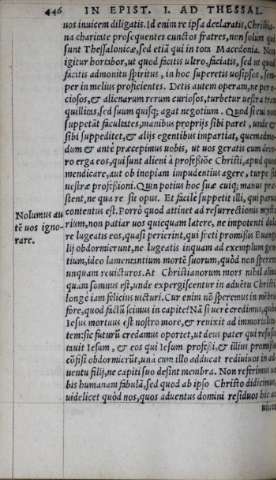 446 IN EPIST. I. AD THESSAL.
nos inuicem diligatis. Id enim re ipsa declaratis, Christia
na charitate prosequentes cunctos fratres, non solum qui
sunt Thessalonicæ, sed etiã qui in tota Macedonia. Nos
igitur hortabor, ut quod facitis ultro, faciatis, sed ut quod
facitis admonitu spiritus, in hoc superetis uosipsos, sem-
per in melius proficientes. Detis autem operam, ne per o-
ciosos, & alienarum rerum curiosos, turbetur uestra tran
quillitas, sed suum quisq; agat negotium. Quod si cui non
suppetãt facultates, manibus proprijs sibi paret, unde &
sibi suppeditet, & alijs egentibus impartiat, quemadmo-
dum & ante præcepimus uobis, ut uos geratis cum deco-
ro erga eos, qui sunt alieni à professiõe Christi, apud quos
mendicare, aut ob inopiam impudentius agere, turpe sit
uestræ professioni. Quin potius hoc suæ cuiq; manus præ
stent, ne qua re sit opus. Et facile suppetit illi, qui paruo
contentus est. Porrò quod attinet ad resurrectionis myste
rium, non patiar uos quicquam latere, ne impotenti dolo
re lugeatis eos, quasi perierint, qui freti promissis Euange
lij obdormierunt, ne lugeatis inquam ad exemplum gen
tium, ideo lamentantium mortẽ suorum, quòd non sperent
unquam reuicturos. At Christianorum mors nihil aliud
quàm somnus est, unde expergiscentur in aduẽtu Christi
longè iam felicius uicturi. Cur enim nõ speremus in mẽbris
fore, quod factũ scimus in capite? Nã si uerè credimus, quòd
Iesus mortuus est nostro more, & reuixit ad immortalita
tem: sic futurũ credamus oportet, ut deus pater qui resusci
tauit Iesum, & eos qui Iesum professi, & illius promissis
cõfisi obdormierũt, unà cum illo adducat rediuiuos in ad-
uentu filij, ne capiti suo desint membra. Non referimus uo
bis humanam fabulã, sed quod ab ipso Christo didicimus,
uidelicet quòd nos, quos aduentus domini residuos hic ac
Nolumus au
tẽ uos igno-
rare.